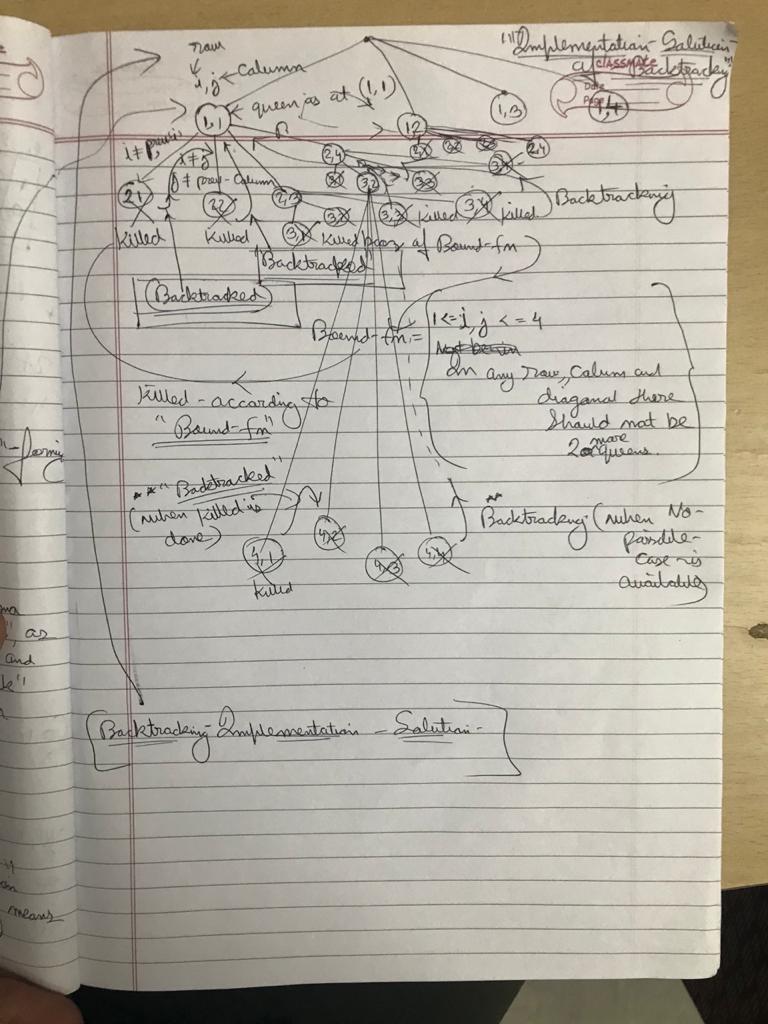 "Implementation-Solution
of "Backtracking"
classmate
Date
Page
row
i, j ← Column
queen is at (1,1)
1,1
1,2
1,3
1,4
i ≠ j
j ≠ prev-Column
2,1
2,2
2,3
2,4
3,2
3,3
3,4
2,4
killed
killed
killed
killed
killed
of Bound-fn
Backtracking
"Backtracked"
Backtracked
Bound-fn =
1<=i, j <= 4
In any row, Colum and
diaganal there
Should not be
more
2 queens.
killed-according to
"Bound-fn"
** "Backtracked"
(when killed is
done)
4,1
4,2
4,3
4,4
killed
Backtracking (when No-
possible-
case-is
available)
Backtracking Implementation - Solution-
as
and
means